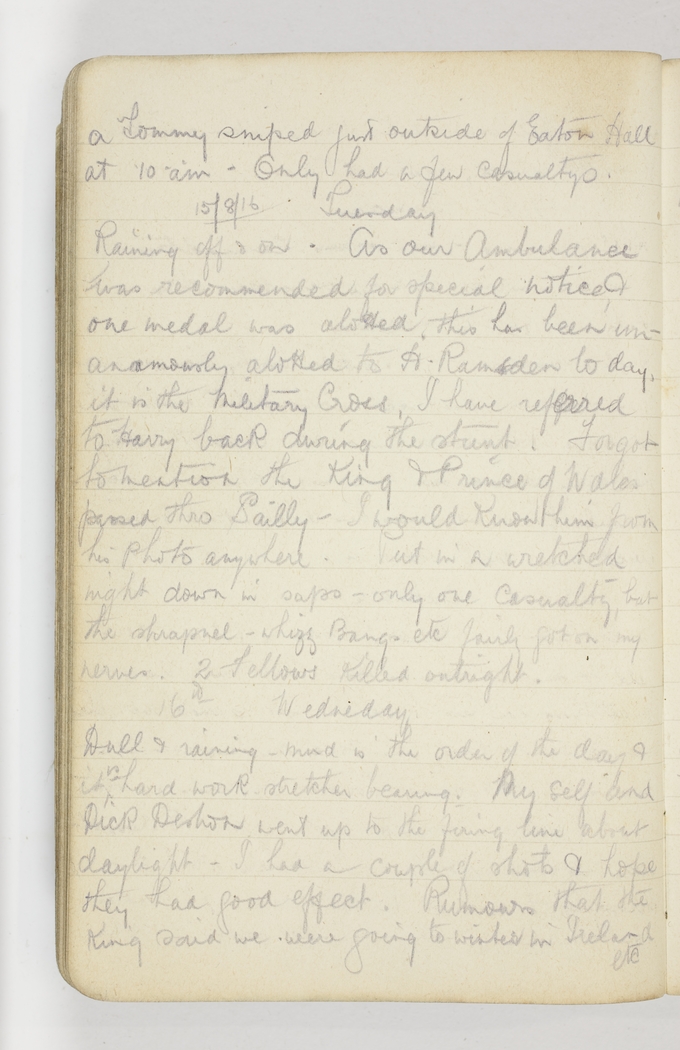 a Tommy sniped just outside of Eaton Hall
at 10 am - Only had a few casualtys.
15/8/16. Tuesday
Raining off & on. As our Ambulance
was recommended for special notice &
one medal was alotted, this has been un-
anamously alotted to H. Ramsden to day,
it is the Military Cross, I have refered
to Harry back during the stunt. Forgot
to mention the King & Prince of Wales
passed thro Sailly - I would know them from
his photo anywhere. Put in a wretched
night down in saps - only one casualty, but
the shrapnel - whizz Bangs etc fairly got on my
nerves. 2 fellows killed outright.
16th Wedneday
Dull & raining - mud is the order of the day &
its hard work stretcher bearing. My self and
Dick Deshon went up to the firing line about
daylight - I had a couple of shots & hope
they had good effect. Rumours that the
King said we were going to winter in Ireland
etc